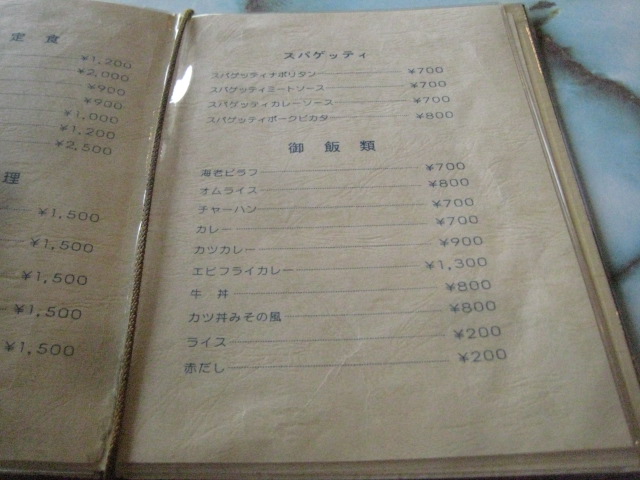 定食
¥1,200
¥2,000
¥900
¥900
¥1,000
¥1,200
¥2,500
理
¥1,500
¥1,500
¥1,500
¥1,500
¥1,500
スパゲッティ
スパゲッティナポリタン ¥700
スパゲッティミートソース ¥700
スパゲッティカレーソース ¥700
スパゲッティポークピカタ ¥800
御飯類
海老ピラフ ¥700
オムライス ¥800
チャーハン ¥700
カレー ¥700
カツカレー ¥900
エビフライカレー ¥1,300
牛丼 ¥800
カツ丼みその風 ¥800
ライス ¥200
赤だし ¥200